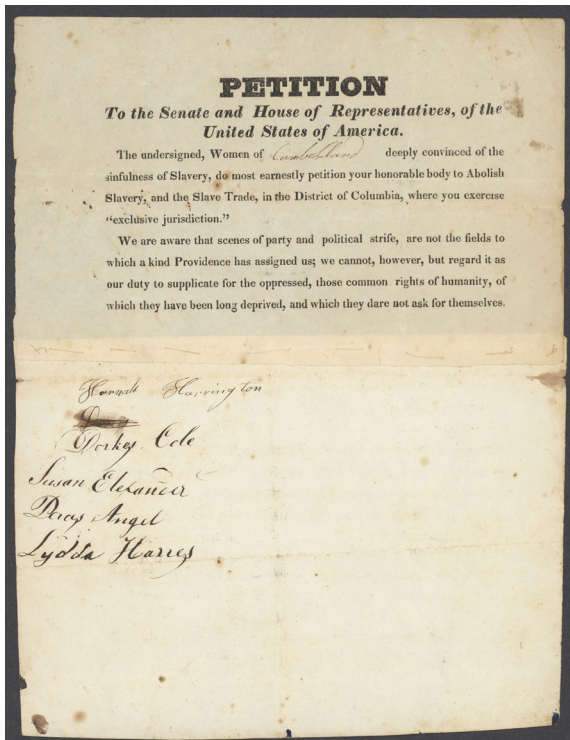 PETITION
To the Senate and House of Representatives, of the
United States of America.
The undersigned, Women of Cumberland deeply convinced of the
sinfulness of Slavery, do most earnestly petition your honorable body to Abolish
Slavery, and the Slave Trade, in the District of Columbia, where you exercise
"exclusive jurisdiction."
We are aware that scenes of party and political strife, are not the fields to
which a kind Providence has assigned us; we cannot, however, but regard it as
our duty to supplicate for the oppressed, those common rights of humanity, of
which they have been long deprived, and which they dare not ask for themselves.
Harrington
Dorkes Cole
Susan Elexander
Angel
Lydda Harres